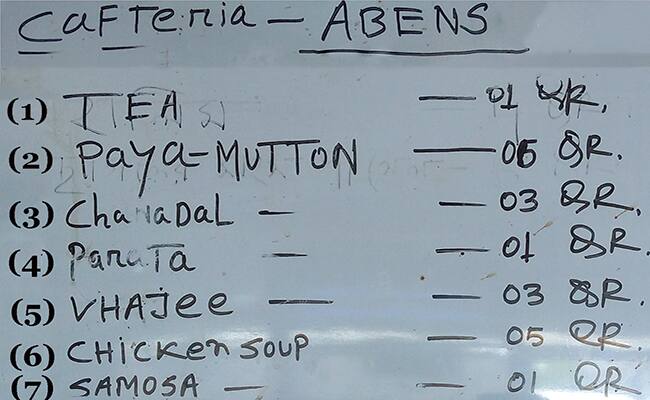 CaFTeria — ABENS
(1) TEA — 01 QR.
(2) PAYA-MUTTON — 06 QR.
(3) ChanaDAL — — 03 QR.
(4) ParaTa — — 01 QR.
(5) VHAJee — — 03 QR.
(6) CHICKen SOUP — 05 QR.
(7) SAMOSA — — 01 QR